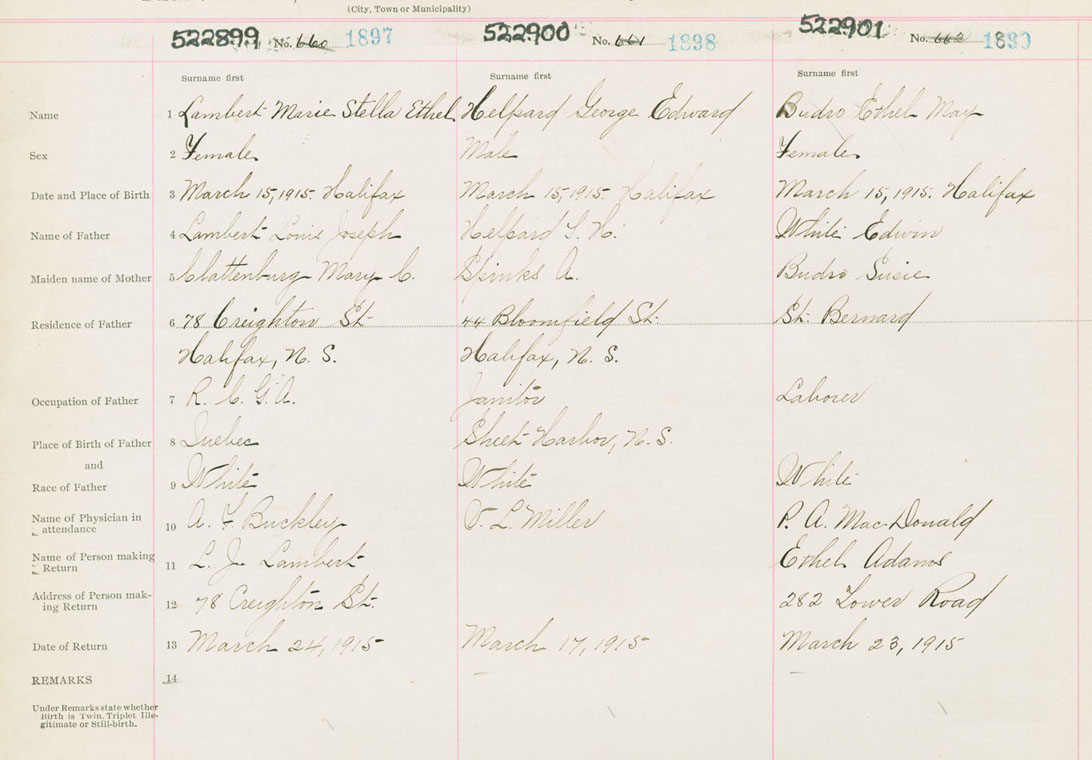 (City, Town or Municipality)
522899 No. 660 1897 522900 No. 661 1898 522901 No. 662
Surname first Surname first Surname first
Name 1 Lambert Marie Stella Ethel Helpard George Edward Budro Ethel May
Sex 2 Female Male Female
Date and Place of Birth 3 March 15, 1915. Halifax March 15, 1915. Halifax March 15, 1915. Halifax
Name of Father 4 Lambert Louis Joseph Helpard White Edwin
Maiden name of Mother 5 Clattenburg Mary C. Spinks A. Budro Susie
Residence of Father 6 78 Creighton St. 44 Bloomfield St. St. Bernard
Halifax, N. S. Halifax, N. S.
Occupation of Father 7 R. C. G. A. Janitor Laborer
Place of Birth of Father 8 Quebec Sheet Harbor, N. S.
and
Race of Father 9 White White White
Name of Physician in
attendance 10 A. F. Buckley V. L. Miller P. A. MacDonald
Name of Person making
Return 11 L. J. Lambert Ethel Adams
Address of Person mak-
ing Return 12 78 Creighton St. 282 Lower Road
Date of Return 13 March 24, 1915 March 17, 1915 March 23, 1915
REMARKS 14 — —
Under Remarks state whether
Birth is Twin, Triplet Ille-
gitimate or Still-birth.